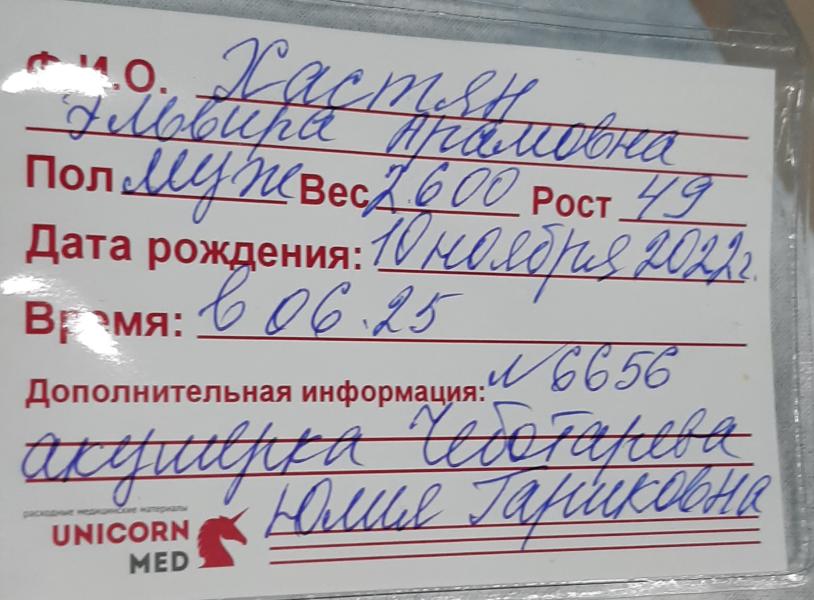 Ф.И.О. Хастян
Эльвира Арамовна
Пол муж Вес 2.600 Рост 49
Дата рождения: 10 ноября 2022г.
Время: в 06.25
Дополнительная информация: №6656
акушерка Чеботарева
Юлия Гариковна
расходные медицинские материалы
UNICORN
MED